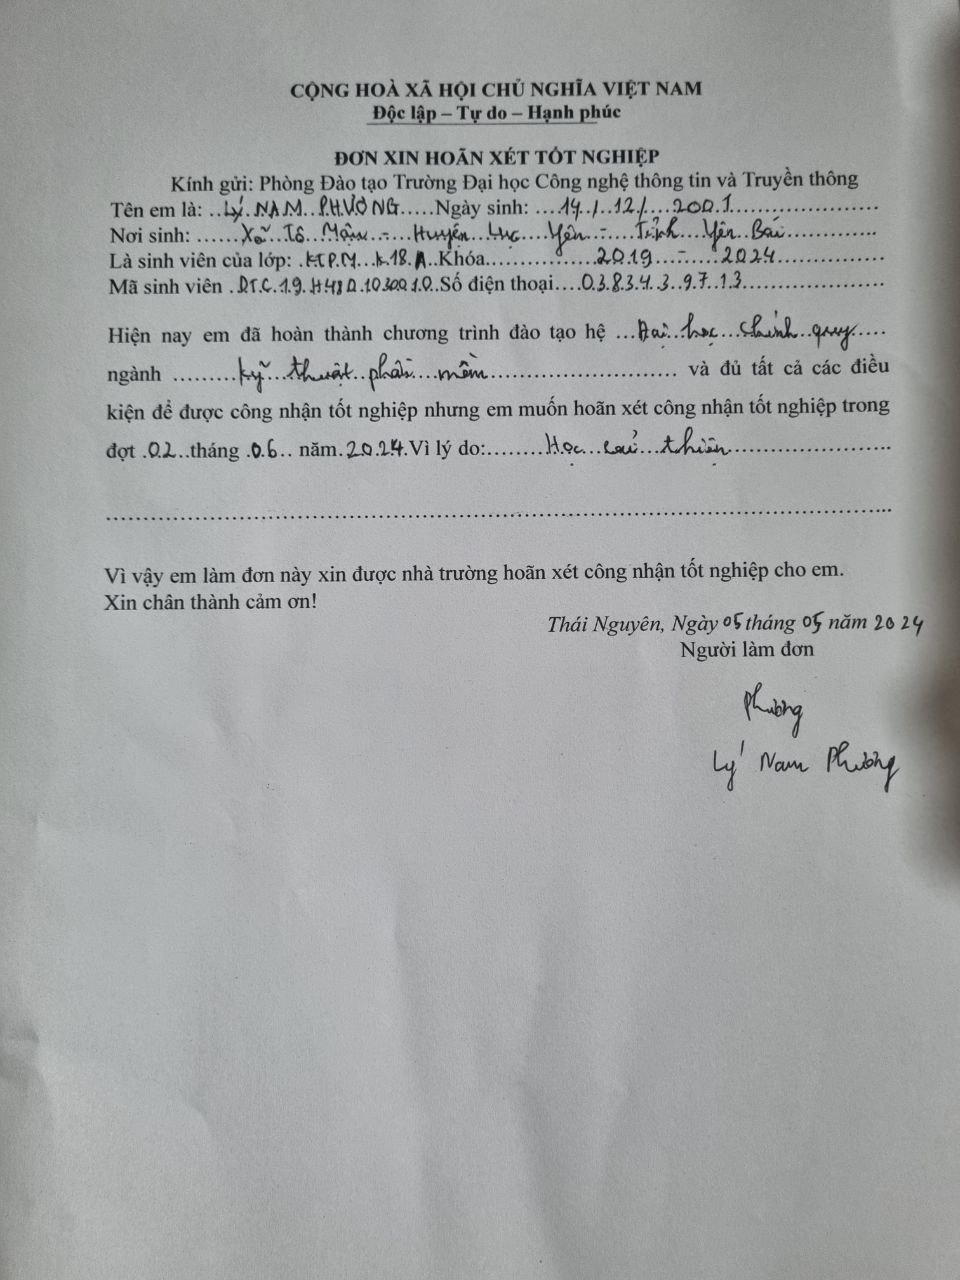 CỘNG HOÀ XÃ HỘI CHỦ NGHĨA VIỆT NAM
Độc lập – Tự do – Hạnh phúc
ĐƠN XIN HOÃN XÉT TỐT NGHIỆP
Kính gửi: Phòng Đào tạo Trường Đại học Công nghệ thông tin và Truyền thông
Tên em là: ..LÝ.NAM..PHƯƠNG.....Ngày sinh: ...14./..12./...2001.....................
Nơi sinh: ......Xã..Tô..Mậu..-...Huyện..Lục...Yên..-....Tỉnh..Yên..Bái..............
Là sinh viên của lớp: .KTPM...K18.A..Khóa................2019...-....2024................
Mã sinh viên .DTC.19.H48.0.10300.1.0..Số điện thoại....0.3.8.3.4..3..9.7..1.3.....................
Hiện nay em đã hoàn thành chương trình đào tạo hệ ...Đại..học...chính..quy....
ngành .........Kỹ..thuật..phần..mềm............................ và đủ tất cả các điều
kiện để được công nhận tốt nghiệp nhưng em muốn hoãn xét công nhận tốt nghiệp trong
đợt .02..tháng .06.. năm.2024.Vì lý do:........Học...cải...thiện.......................
....................................................................................................
Vì vậy em làm đơn này xin được nhà trường hoãn xét công nhận tốt nghiệp cho em.
Xin chân thành cảm ơn!
Thái Nguyên, Ngày 05 tháng 05 năm 2024
Người làm đơn
Phương
Lý Nam Phương